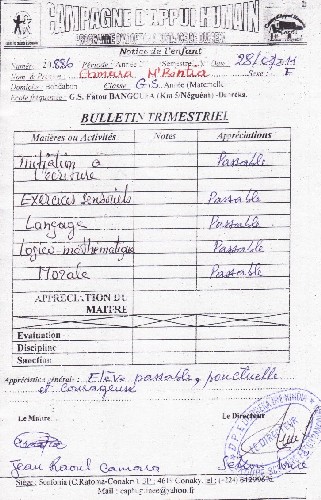 CAMPAGNE D'APPUI HUMAIN
Notice de l'enfant
Numéro : 11886 Période : Année Semestre Date : 28/07/2011
Nom & Prénom : Camara M'Bontia Sexe : F
Domicile : Classe G.S. Année (Maternelle
Ecole fréquentée : G.S. Fatou BANGOURA (Km 5/Néguéa) -Dubréka.
BULLETIN TRIMESTRIEL
Matières ou Activités Notes Appréciations
Initiation à l'écriture Passable
Exercices sensoriels Passable
Langage Passable
Logico-mathématique Passable
Morale Passable
APPRÉCIATION DU MAITRE
Evaluation
Discipline
Sanction
Appréciation générale : Elève passable, ponctuelle
et courageuse
Le Maître Le Directeur
Jean Raoul Camara
Siège : Sonfonia (C.Ratoma-Conakry) BP : 4618 Conakry. Tel : (+224)
Mail : @yahoo.fr